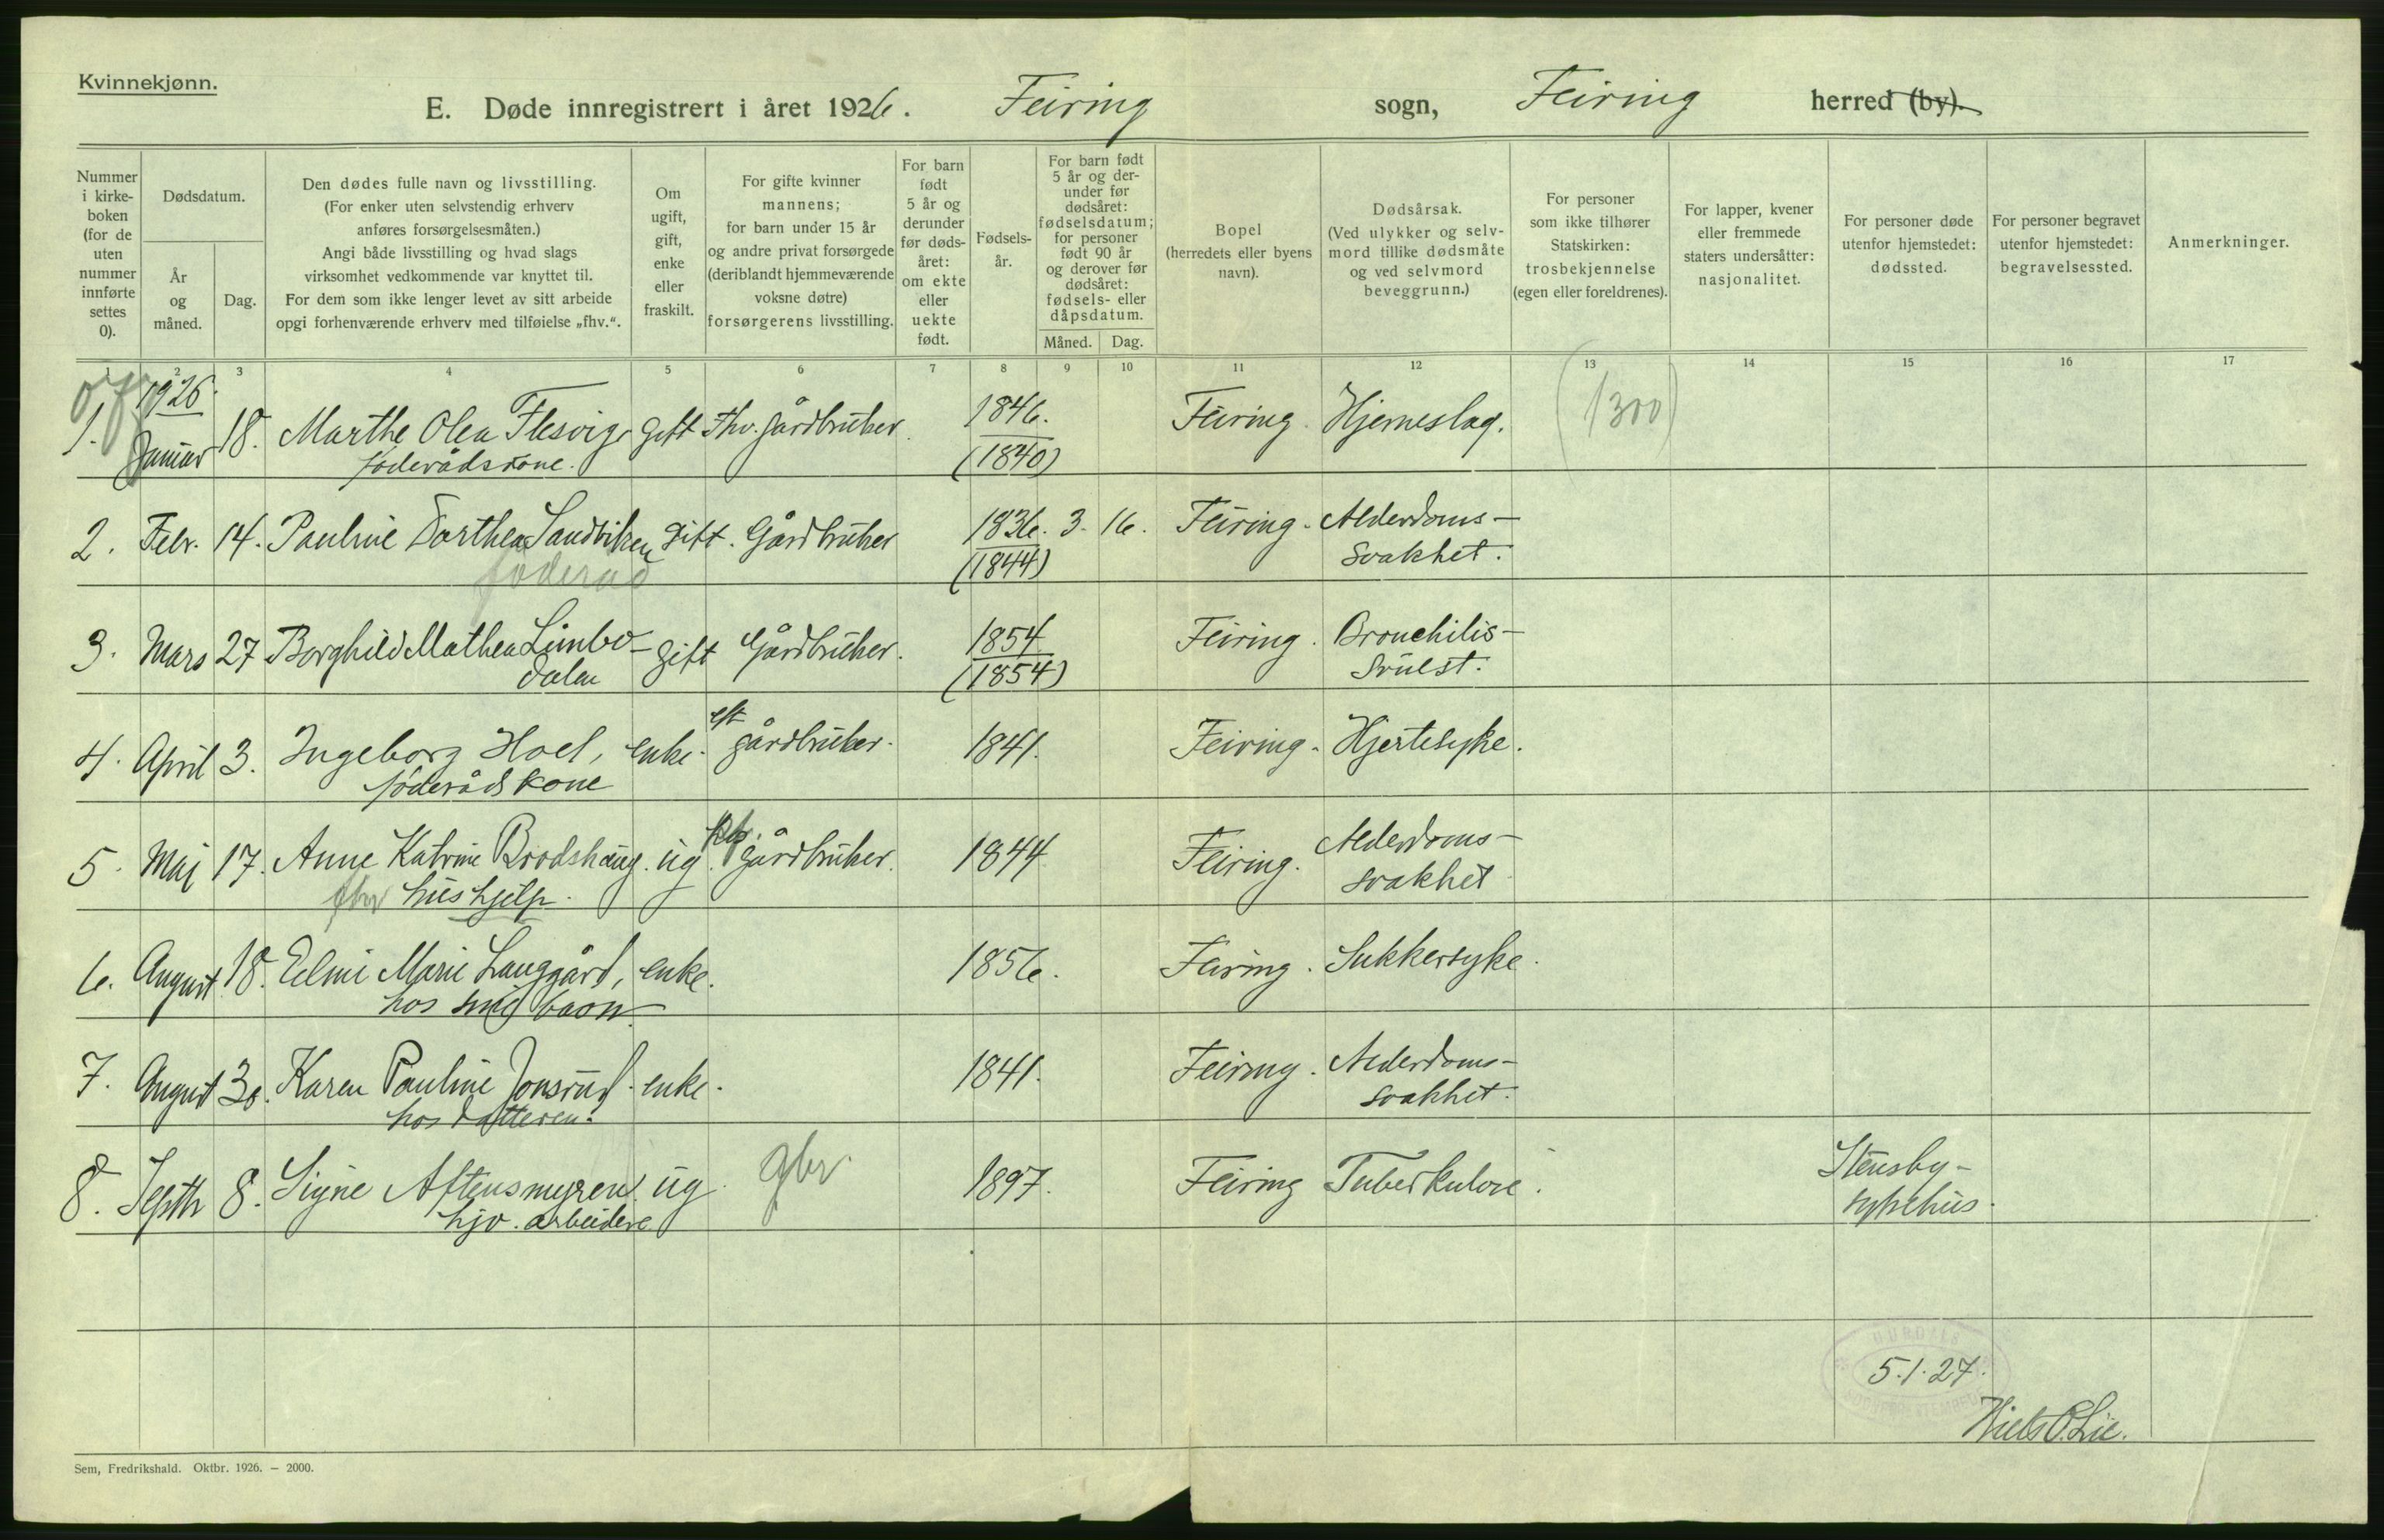 Kvinnekjønn.
E. Døde innregistrert i året 1926. Feiring sogn, Feiring herred (by).
Nummer i kirke-boken (for de uten nummer innførte settes 0).
Dødsdatum.
År og måned.
Dag.
Den dødes fulle navn og livsstilling.
(For enker uten selvstendig erhverv
anføres forsørgelsesmåten.)
Angi både livsstilling og hvad slags
virksomhet vedkommende var knyttet til.
For dem som ikke lenger levet av sitt arbeide
opgi forhenværende erhverv med tilføielse „fhv.“.
Om ugift, gift, enke eller fraskilt.
For gifte kvinner
mannens;
for barn under 15 år
og andre privat forsørgede
(deriblandt hjemmeværende
voksne døtre)
forsørgerens livsstilling.
For barn født 5 år og derunder før døds-året: om ekte eller uekte født.
Fødsels-år.
For barn født 5 år og der-under før dødsåret: fødselsdatum; for personer født 90 år og derover før dødsåret: fødsels- eller dåpsdatum.
Måned. Dag.
Bopel
(herredets eller byens
navn).
Dødsårsak.
(Ved ulykker og selv-
mord tillike dødsmåte
og ved selvmord
beveggrunn.)
For personer
som ikke tilhører
Statskirken:
trosbekjennelse
(egen eller foreldrenes).
For lapper, kvener
eller fremmede
staters undersåtter:
nasjonalitet.
For personer døde
utenfor hjemstedet:
dødssted.
For personer begravet
utenfor hjemstedet:
begravelsessted.
Anmerkninger.
1 2 3 4 5 6 7 8 9 10 11 12 13 14 15 16 17
1926.
1. Januar 18. Marthe Olea Flesvig gift Fhv. gårdbruker. 1846. Feiring. Hjerneslag. (1300)
føderådskone. (1840)
2. Febr. 14. Pauline Dorthea Sandviken gift. Gårdbruker 1836. 3. 16. Feiring. Alderdoms-
føderåd (1844) svakhet.
3. Mars 27 Borghild Mathea Limbo- gift Gårdbruker. 1854 Feiring. Bronchitis-
dalen (1854) svulst.
4. April 3. Ingeborg Hoel, enke. eft gårdbruker. 1841. Feiring. Hjertesyke.
føderådskone
5. Mai 17. Anne Katrine Brodshaug. ug. gårdbruker. 1844 Feiring. Alderdoms-
fhv hushjelp. svakhet
6. August 18. Marie Langgård, enke. 1856. Feiring. Sukkersyke.
hos sine barn
7. August 30. Karen Pauline Jonsrud. enke. 1841. Feiring. Alderdoms-
hos datteren. svakhet.
8. Septbr 8. Signe Aftensmyren. ug. gbr. 1897. Feiring Tuberkulose. Stensby-
hjv. arbeidere sykehus.
5.1.27.
Niels P. Lie.
Sem, Fredrikshald. Oktbr. 1926. – 2000.